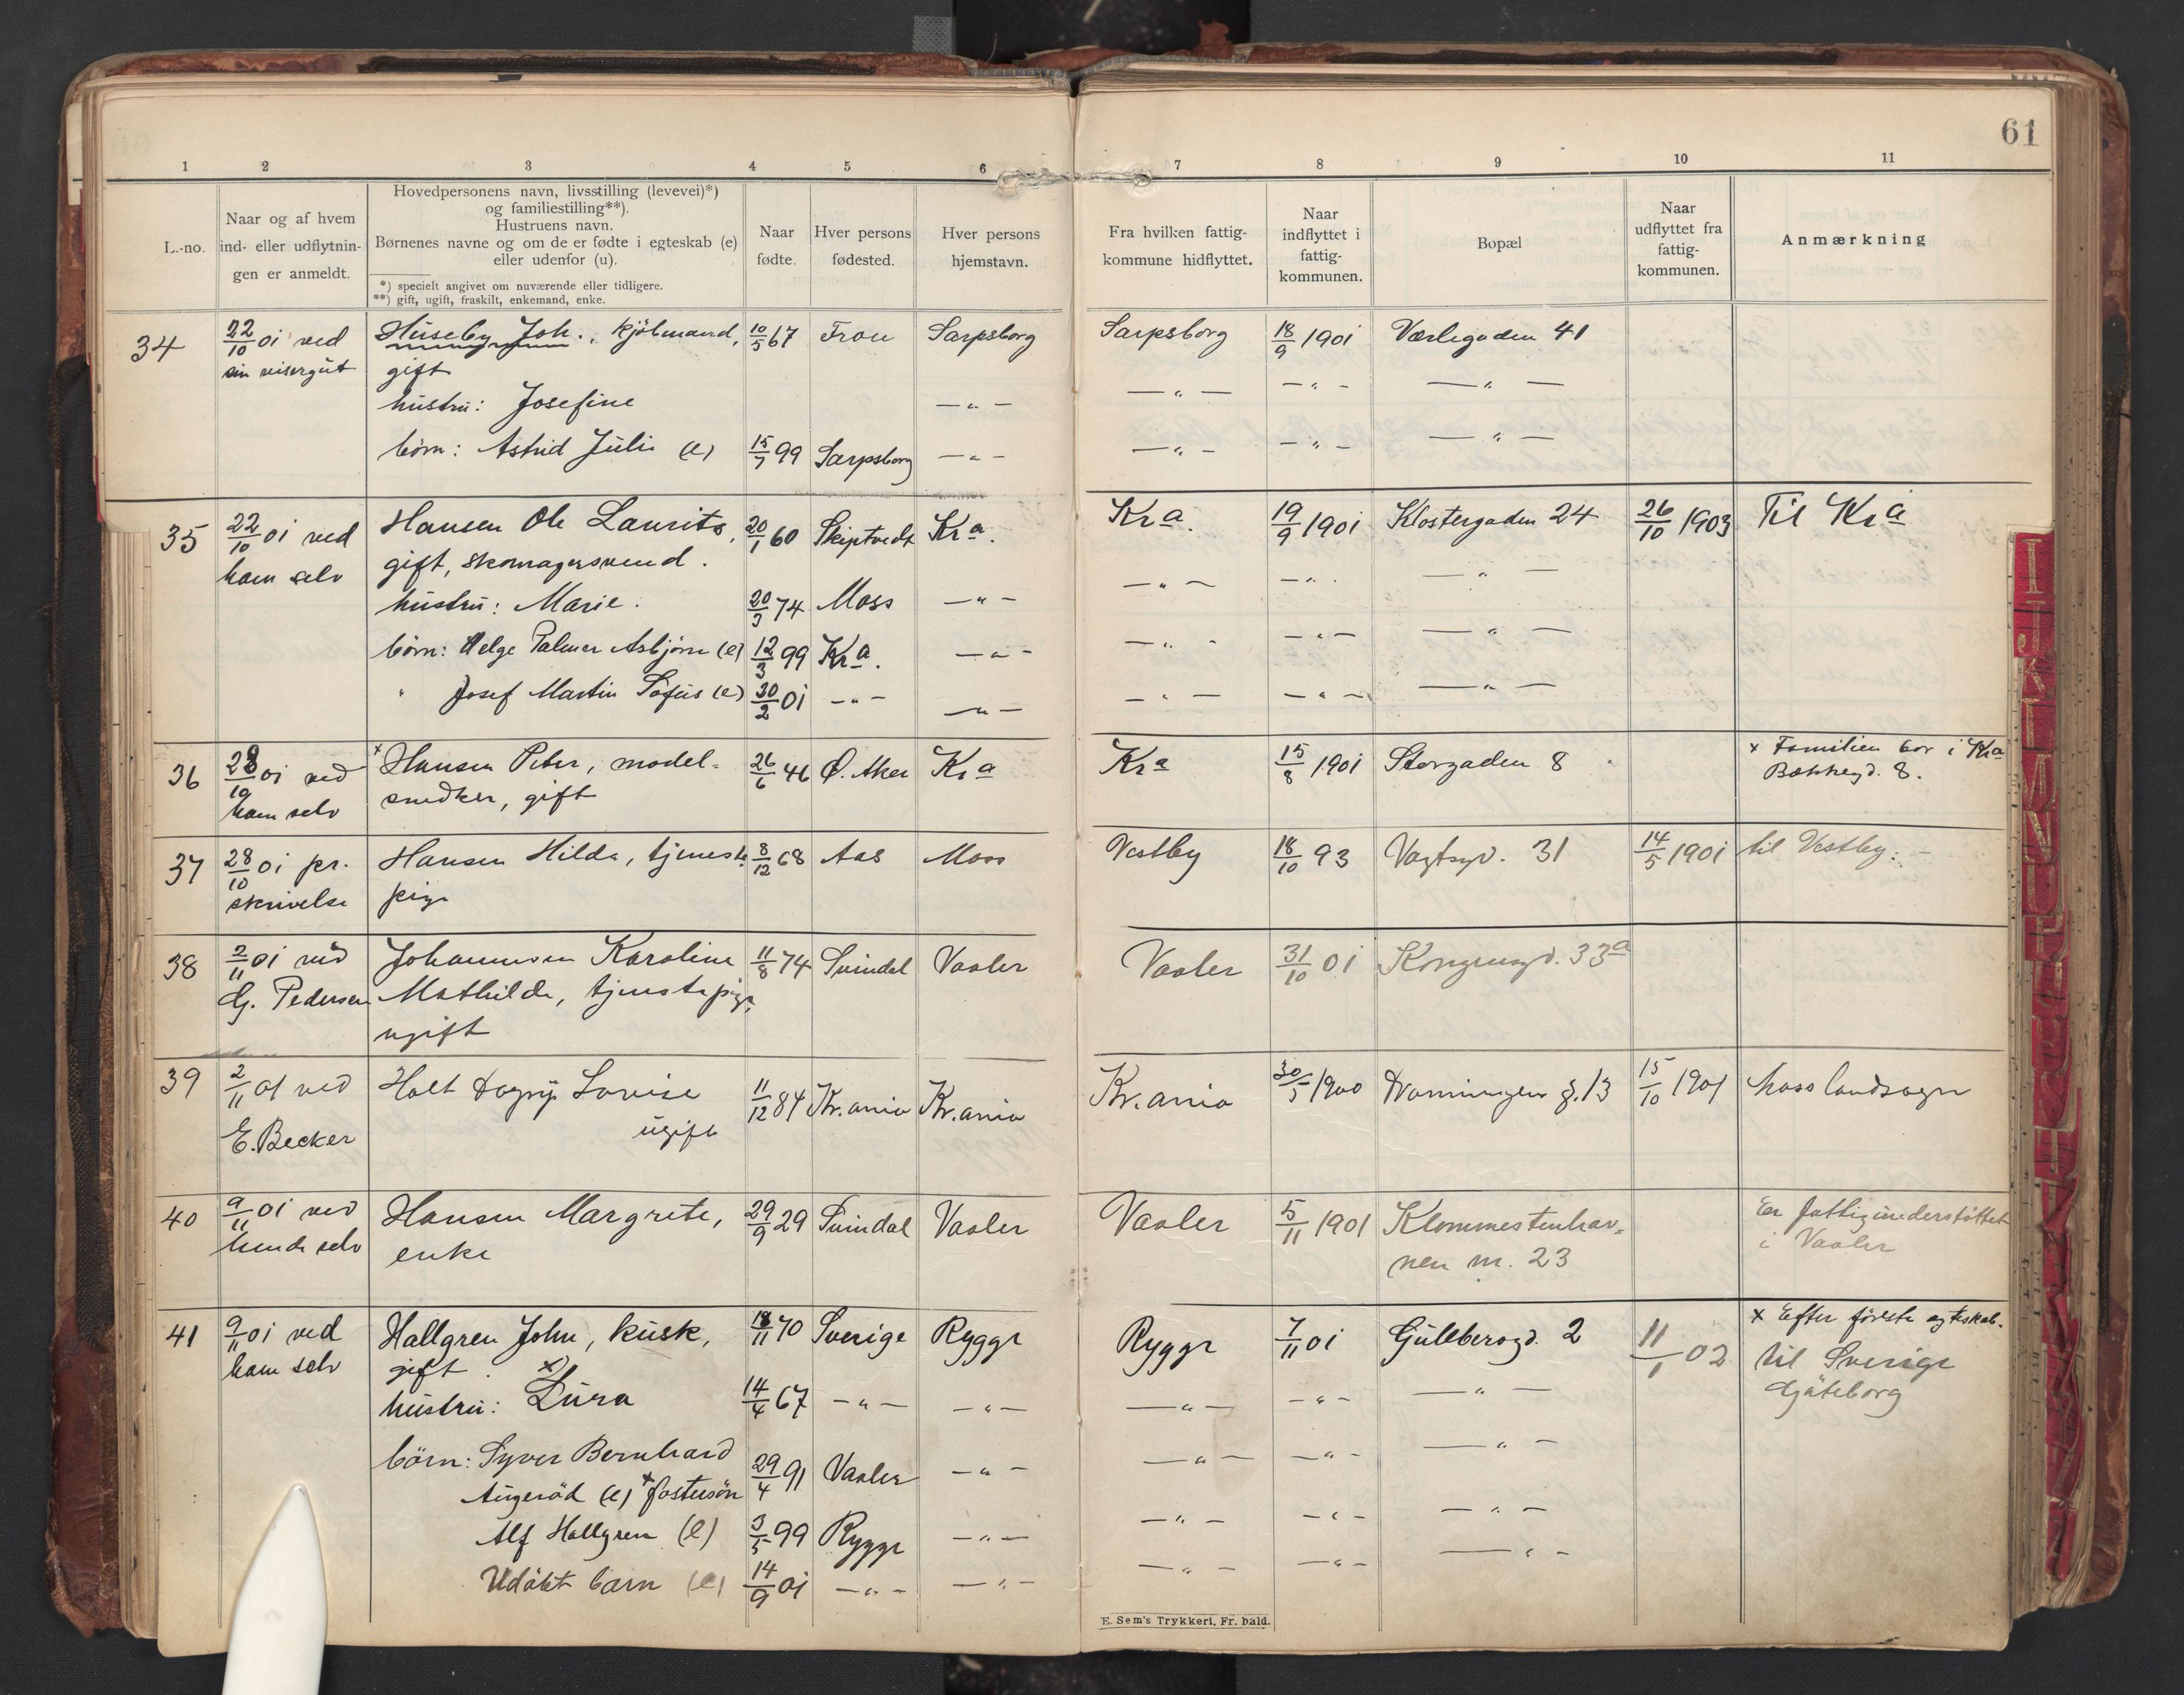 61
1 2 3 4 5 6 7 8 9 10 11
L.-no.
Naar og af hvem
ind- eller udflytnin-
gen er anmeldt.
Hovedpersonens navn, livsstilling (levevei)*)
og familiestilling**).
Hustruens navn.
Børnenes navne og om de er fødte i egteskab (e)
eller udenfor (u).
*) specielt angivet om nuværende eller tidligere.
**) gift, ugift, fraskilt, enkemand, enke.
Naar
fødte.
Hver persons
fødested.
Hver persons
hjemstavn.
Fra hvilken fattig-
kommune hidflyttet.
Naar
indflyttet i
fattig-
kommunen.
Bopæl
Naar
udflyttet fra
fattig-
kommunen.
Anmærkning
34 22/10 01 ved Huseby Joh., kjøbmand, 10/5 67 Sarpsborg Sarpsborg 18/9 1901 Værlegaden 41
sin visergut gift
hustru: Josefine —"— —"— —"— —"—
børn: Astrid Juli (e) 15/7 99 Sarpsborg —"— —"— —"— —"—
35 22/10 01 ved Hansen Ole Laurits, 20/1 60 Skiptvedt Kra. Kra. 19/9 1901 Klostergaden 24 26/10 1903 Til Kra
ham selv gift, skomagersvend.
hustru: Marie. 20/3 74 Moss —"— —"— —"— —"—
børn: Helge Palmer Asbjørn (e) 12/3 99 Kra. —"— —"— —"— —"—
" Josef Martin Sofus (e) 20/2 01 —"— —"— —"— —"— —"—
36 28/10 01 ved × Hansen Peter, model- 26/6 46 Ø. Aker Kra Kra 15/8 1901 Storgaden 8 × Familien bor i Kra
ham selv snedker, gift Bakkegd. 8.
37 28/10 01 pr. Hansen Hilda, tjeneste 8/12 68 Aas Moss Vestby 18/10 93 Vogtsgd. 31 14/5 1901 til Vestby.
skrivelse pige
38 2/11 01 ved Johannesen Karoline 11/8 74 Svindal Vaaler Vaaler 31/10 01 Kongensgd. 33a
G. Pedersen Mathilde, tjenestepige,
ugift
39 2/11 01 ved Holt Dagny Lovise 11/12 84 Kr.ania Kr.ania Kr.ania 30/5 1900 Dronningens g. 13 15/10 1901 Moss landsogn
E. Becker ugift
40 9/11 01 ved Hansen Margrete, 29/9 29 Svindal Vaaler Vaaler 5/11 1901 Klommestenhav- Er fattigunderstøttet
hende selv enke nen nr. 23 i Vaaler
41 9/11 01 ved Hallgren John, kusk, 18/11 70 Sverige Rygge Rygge 7/11 01 Gulbergd. 2 11/1 02 × Efter første egteskab.
ham selv gift. til Sverige
×) hustru: Lura 14/4 67 —"— —"— —"— —"— —"— Gøteborg
børn: Syver Bernhard
Augerød (e) × fostersøn 29/4 91 Vaaler —"— —"— —"— —"—
Alf Hallgren (e) 3/5 99 Rygge —"— —"— —"— —"—
Udøbt barn (e) 14/9 01 —"— —"— —"— —"— —"—
E. Sem's Trykkeri, Fr. hald.
I J K L M N O P